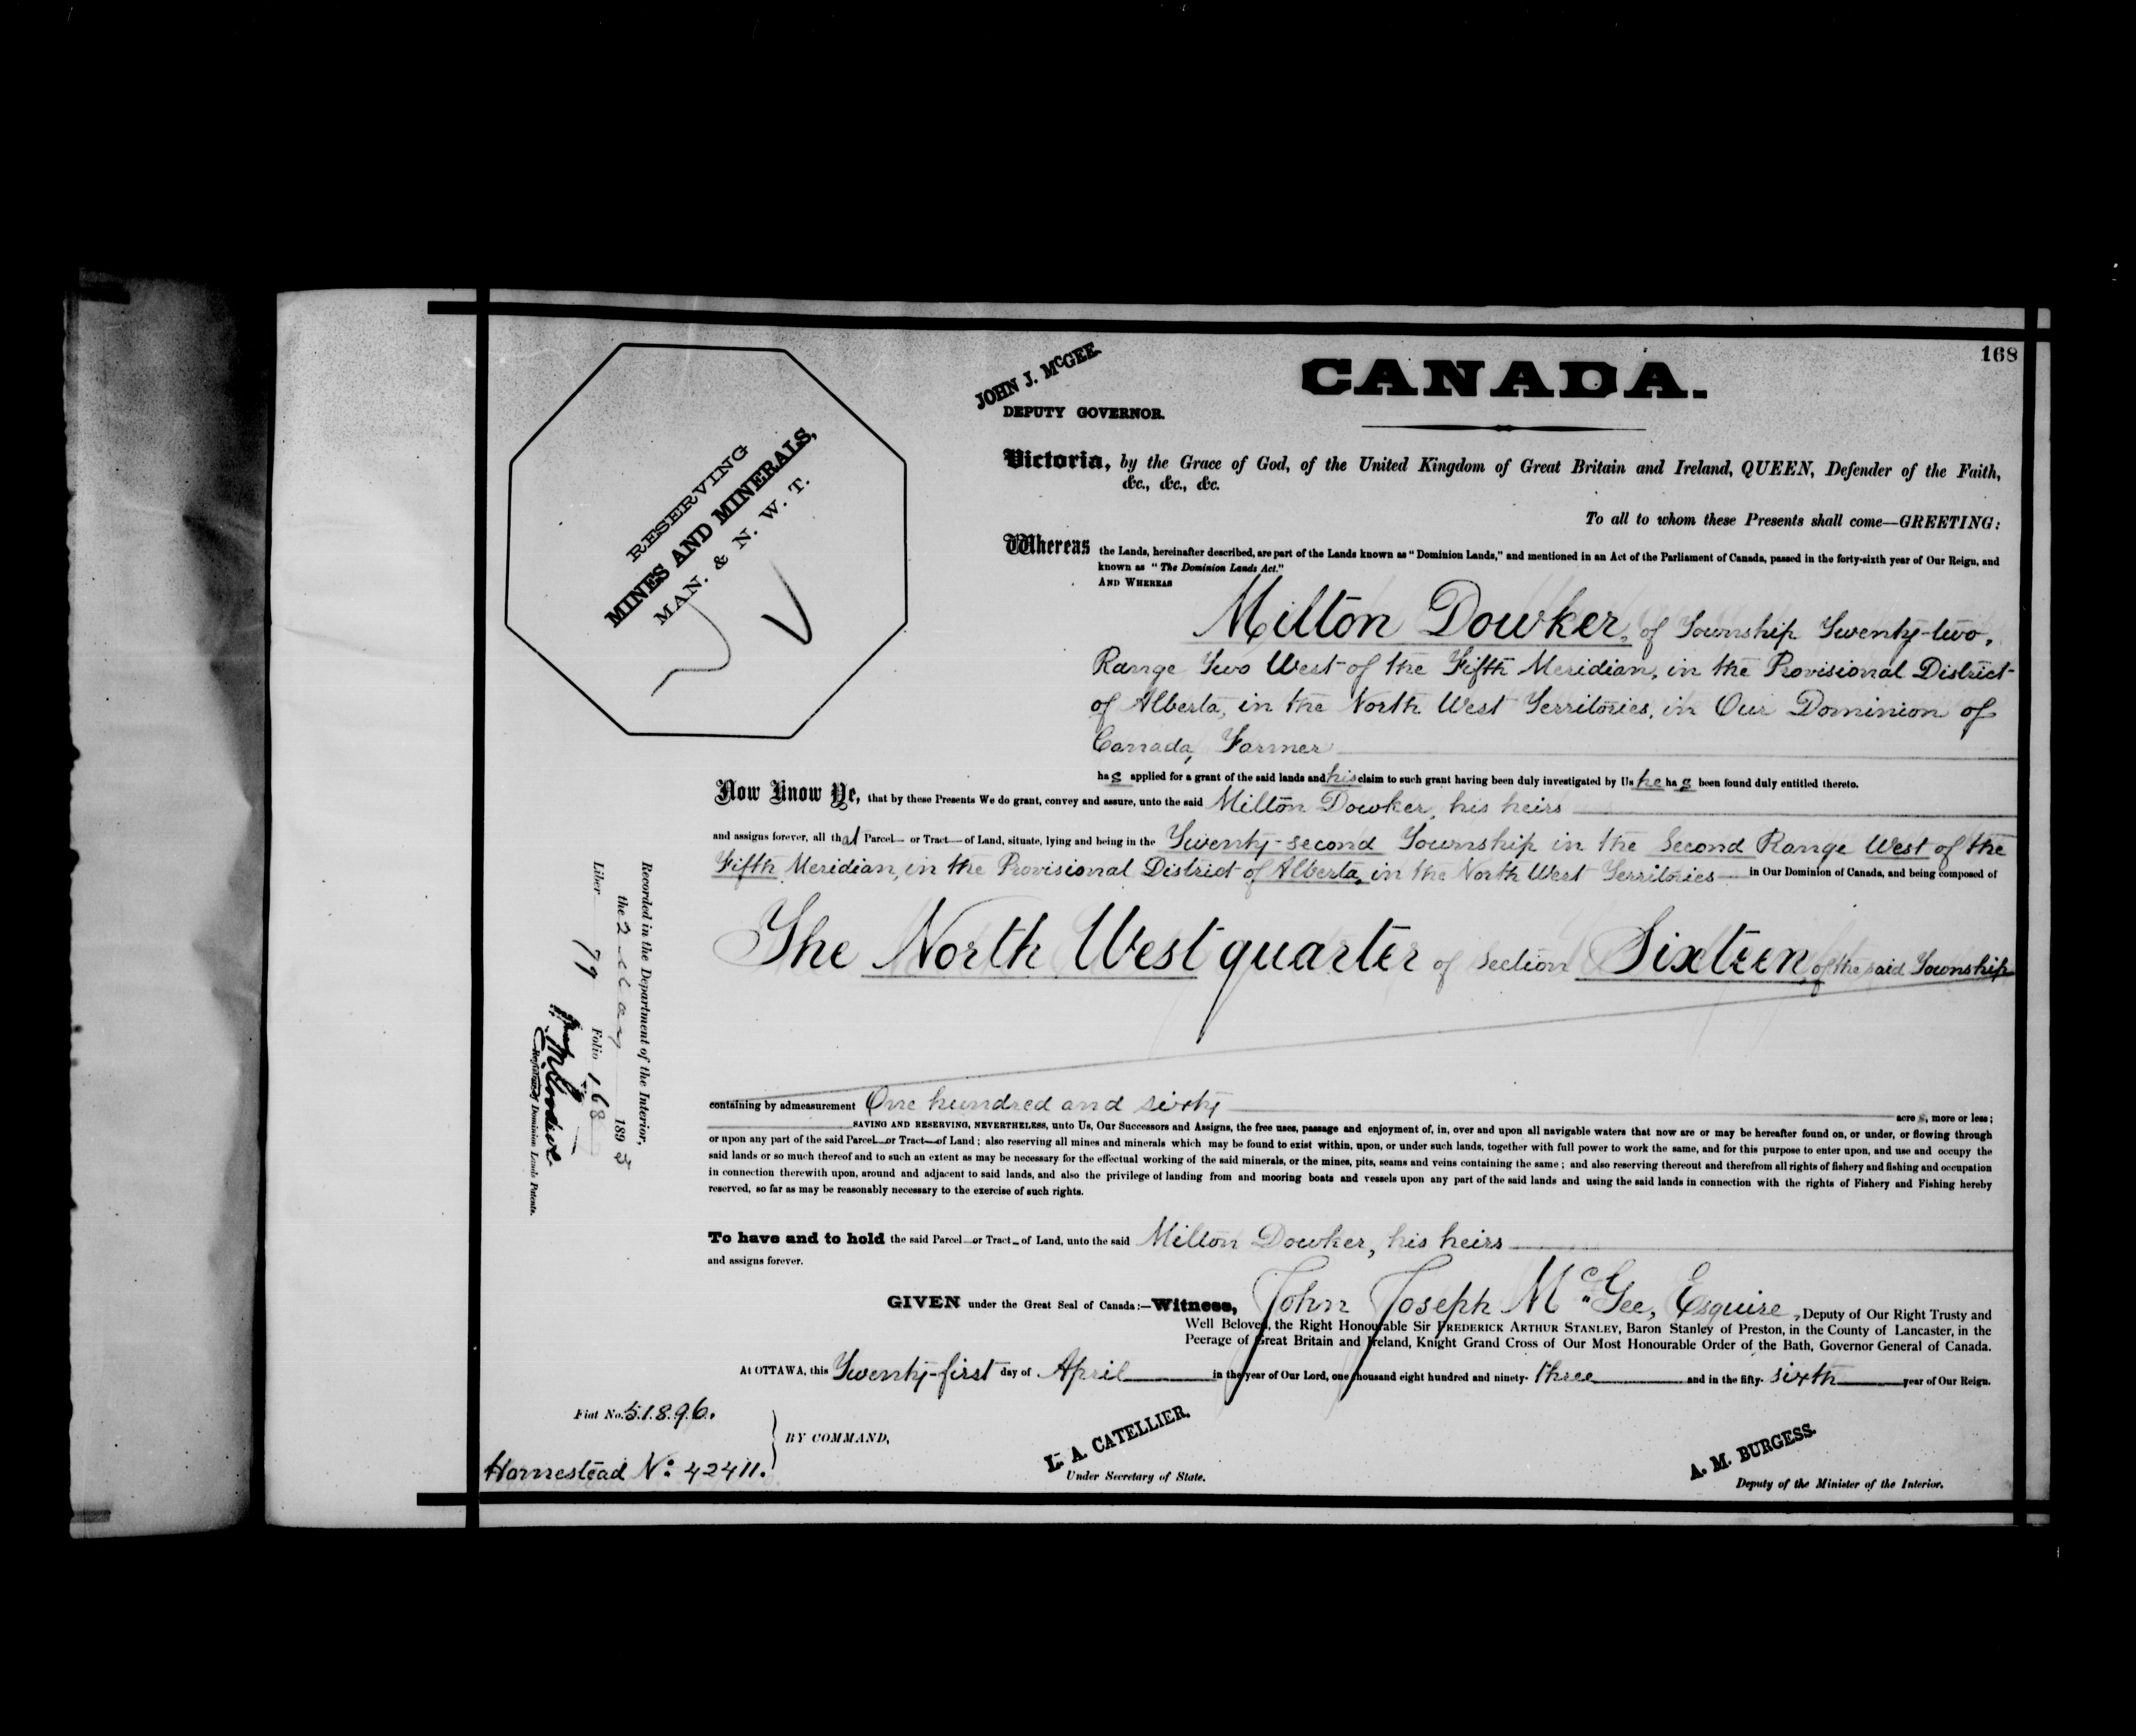 168
CANADA.
JOHN J. McGEE.
DEPUTY GOVERNOR.
RESERVING
MINES AND MINERALS,
MAN. & N. W. T.
Victoria, by the Grace of God, of the United Kingdom of Great Britain and Ireland, QUEEN, Defender of the Faith,
&c., &c., &c.
To all to whom these Presents shall come—GREETING:
Whereas the Lands, hereinafter described, are part of the Lands known as "Dominion Lands," and mentioned in an Act of the Parliament of Canada, passed in the forty-sixth year of Our Reign, and
known as "The Dominion Lands Act."
AND WHEREAS
Milton Dowker, of Township Twenty-two,
Range Two West of the Fifth Meridian, in the Provisional District
of Alberta, in the North West Territories, in Our Dominion of
Canada, Farmer
has applied for a grant of the said lands and his claim to such grant having been duly investigated by Us he has been found duly entitled thereto.
Now Know Ye, that by these Presents We do grant, convey and assure, unto the said Milton Dowker, his heirs
and assigns forever, all that Parcel or Tract of Land, situate, lying and being in the Twenty-second Township in the Second Range West of the
Fifth Meridian, in the Provisional District of Alberta, in the North West Territories in Our Dominion of Canada, and being composed of
The North West quarter of Section Sixteen, of the said Township
containing by admeasurement One hundred and sixty acres, more or less;
SAVING AND RESERVING, NEVERTHELESS, unto Us, Our Successors and Assigns, the free uses, passage and enjoyment of, in, over and upon all navigable waters that now are or may be hereafter found on, or under, or flowing through
or upon any part of the said Parcel or Tract of Land; also reserving all mines and minerals which may be found to exist within, upon, or under such lands, together with full power to work the same, and for this purpose to enter upon, and use and occupy the
said lands or so much thereof and to such an extent as may be necessary for the effectual working of the said minerals, or the mines, pits, seams and veins containing the same; and also reserving thereout and therefrom all rights of fishery and fishing and occupation
in connection therewith upon, around and adjacent to said lands, and also the privilege of landing from and mooring boats and vessels upon any part of the said lands and using the said lands in connection with the rights of Fishery and Fishing hereby
reserved, so far as may be reasonably necessary to the exercise of such rights.
To have and to hold the said Parcel or Tract of Land, unto the said Milton Dowker, his heirs
and assigns forever.
GIVEN under the Great Seal of Canada:—Witness, John Joseph McGee, Esquire, Deputy of Our Right Trusty and
Well Beloved, the Right Honourable Sir FREDERICK ARTHUR STANLEY, Baron Stanley of Preston, in the County of Lancaster, in the
Peerage of Great Britain and Ireland, Knight Grand Cross of Our Most Honourable Order of the Bath, Governor General of Canada.
At OTTAWA, this Twenty-first day of April in the year of Our Lord, one thousand eight hundred and ninety-three and in the fifty-sixth year of Our Reign.
Fiat No. 51896.
Homestead No. 42411.
BY COMMAND,
L. A. CATELLIER.
Under Secretary of State.
A. M. BURGESS.
Deputy of the Minister of the Interior.
Recorded in the Department of the Interior,
the 2 May 1893
Liber 79 Folio 168
Registrar of Dominion Lands Patents.